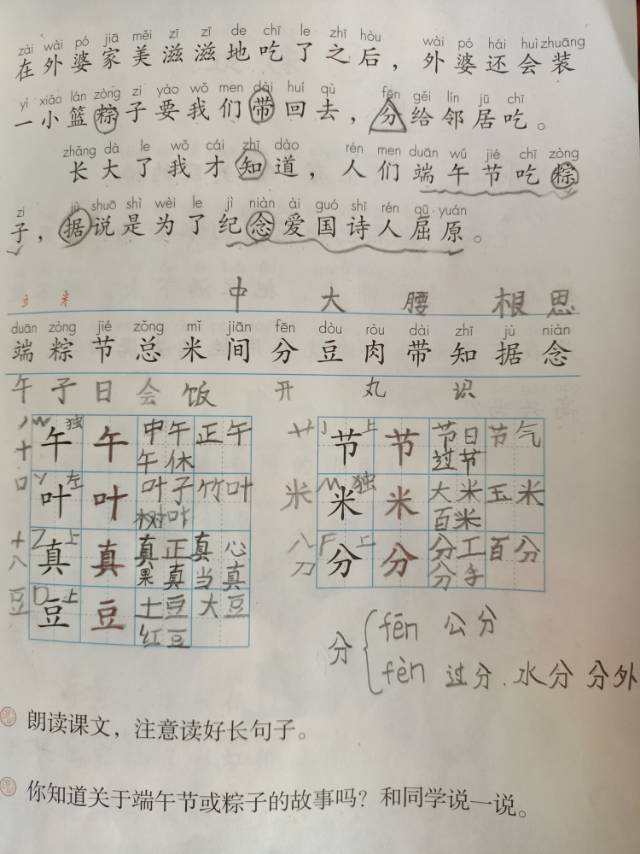 zài wài pó jiā měi zī zī de chī le zhī hòu wài pó hái huì zhuāng
在外婆家美滋滋地吃了之后，外婆还会装
yì xiǎo lán zòng zi yào wǒ men dài huí qù fēn gěi lín jū chī
一小篮粽子要我们带回去，分给邻居吃。
zhǎng dà le wǒ cái zhī dào rén men duān wǔ jié chī zòng
长大了我才知道，人们端午节吃粽
zi jù shuō shì wèi le jì niàn ài guó shī rén qū yuán
子，据说是为了纪念爱国诗人屈原。
中 大 腰 根 思
duān zòng jié zǒng mǐ jiān fēn dòu ròu dài zhī jù niàn
端 粽 节 总 米 间 分 豆 肉 带 知 据 念
午 子 日 会 饭 开 丸 识
十 午 独 午 中午 正午 午休
艹 节 上 节 节日 节气 过节
口 叶 左 叶 叶子 竹叶 树叶
米 米 独 米 大米 玉米 百米
十 八 真 上 真 真正 真心 果真 当真
八 刀 分 上 分 分工 百分 分手
豆 豆 上 豆 土豆 大豆 红豆
分 fēn 公分
fèn 过分．水分 分外
朗读课文，注意读好长句子。
你知道关于端午节或粽子的故事吗？和同学说一说。